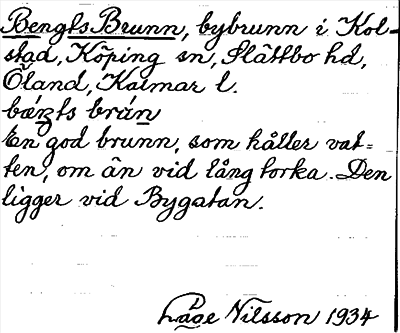 Bengts Brunn, bybrunn i Kol-
stad, Köping sn, Slättbo hd,
Öland, Kalmar l.
bæŋts brún
En god brunn, som håller vat=
ten, om än vid lång torka. Den
ligger vid Bygatan.
Åge Nilsson 1934